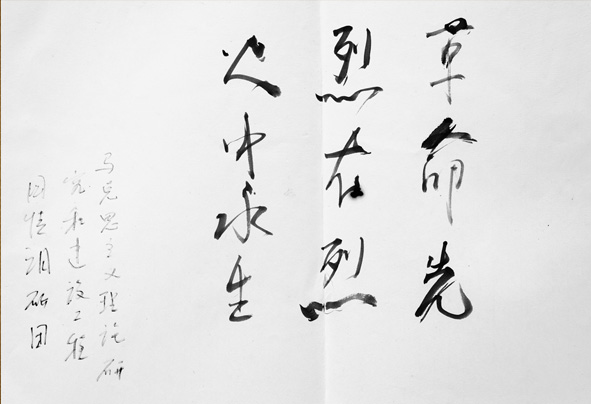 革命先
烈在烈
火中永生
马克思主义理论研
究和建设工程
国情调研团